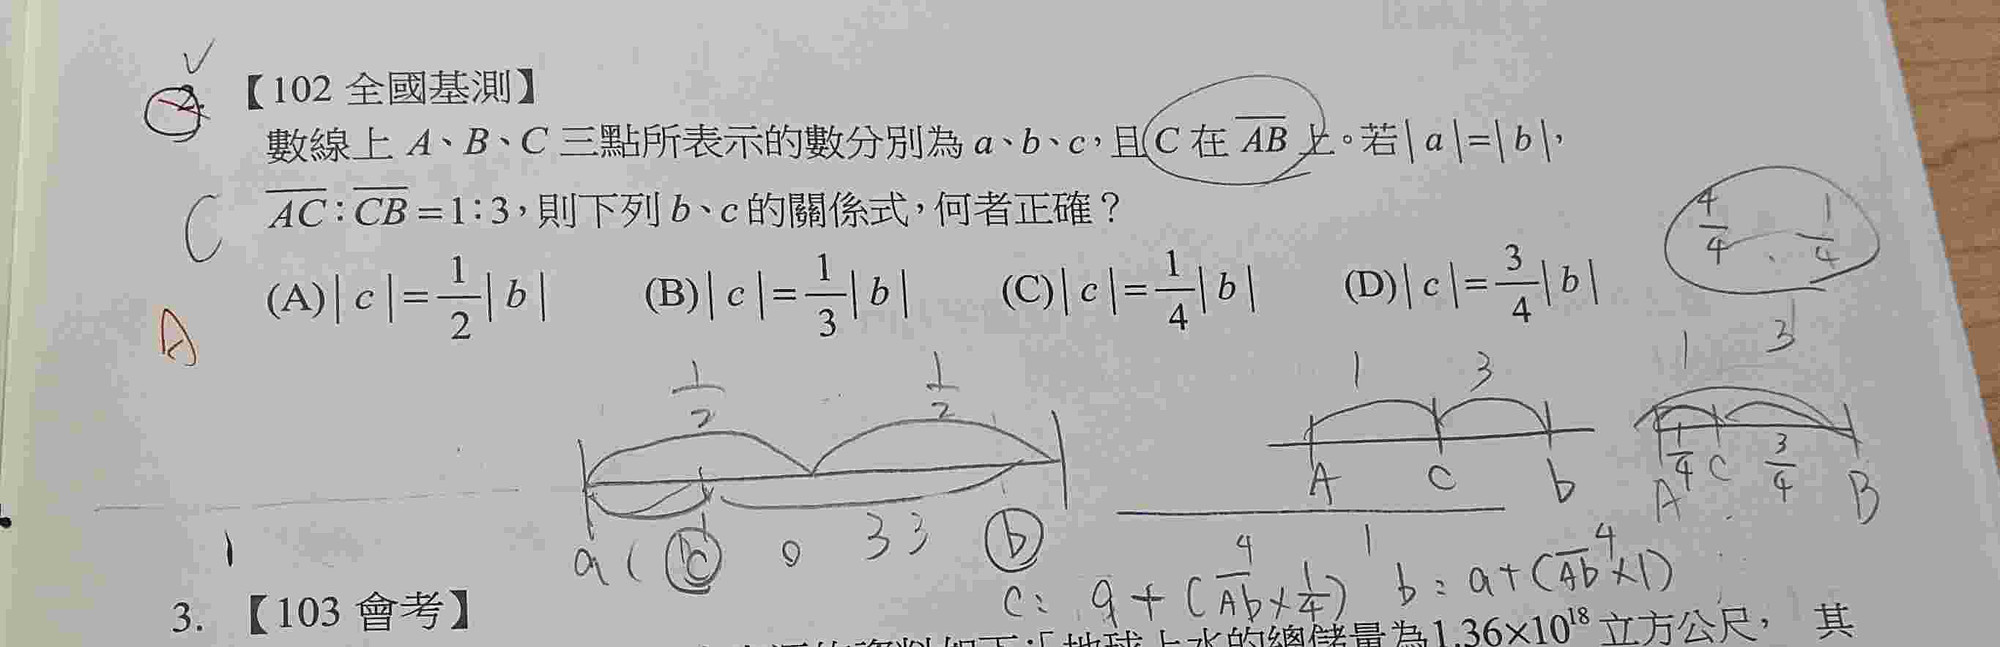 ✓
2. 【102 全國基測】
數線上 A、B、C 三點所表示的數分別為 a、b、c,且 C 在 \overline{AB} 上。若|a|=|b|,
\overline{AC}:\overline{CB}=1:3,則下列 b、c 的關係式,何者正確?
C
(A)|c|=1/2|b| (B)|c|=1/3|b| (C)|c|=1/4|b| (D)|c|=3/4|b|
A
4/4 、 1/4
1/2 1/2
a ( c 0 3 3 b
1 3
A C b
1 3
1/4 C 3/4
A B
4 1 4
c: a+(\overline{Ab}×1/4) b: a+(\overline{Ab}×1)
1
3. 【103 會考】
地球上水的總儲量為1.36×10^18 立方公尺, 其